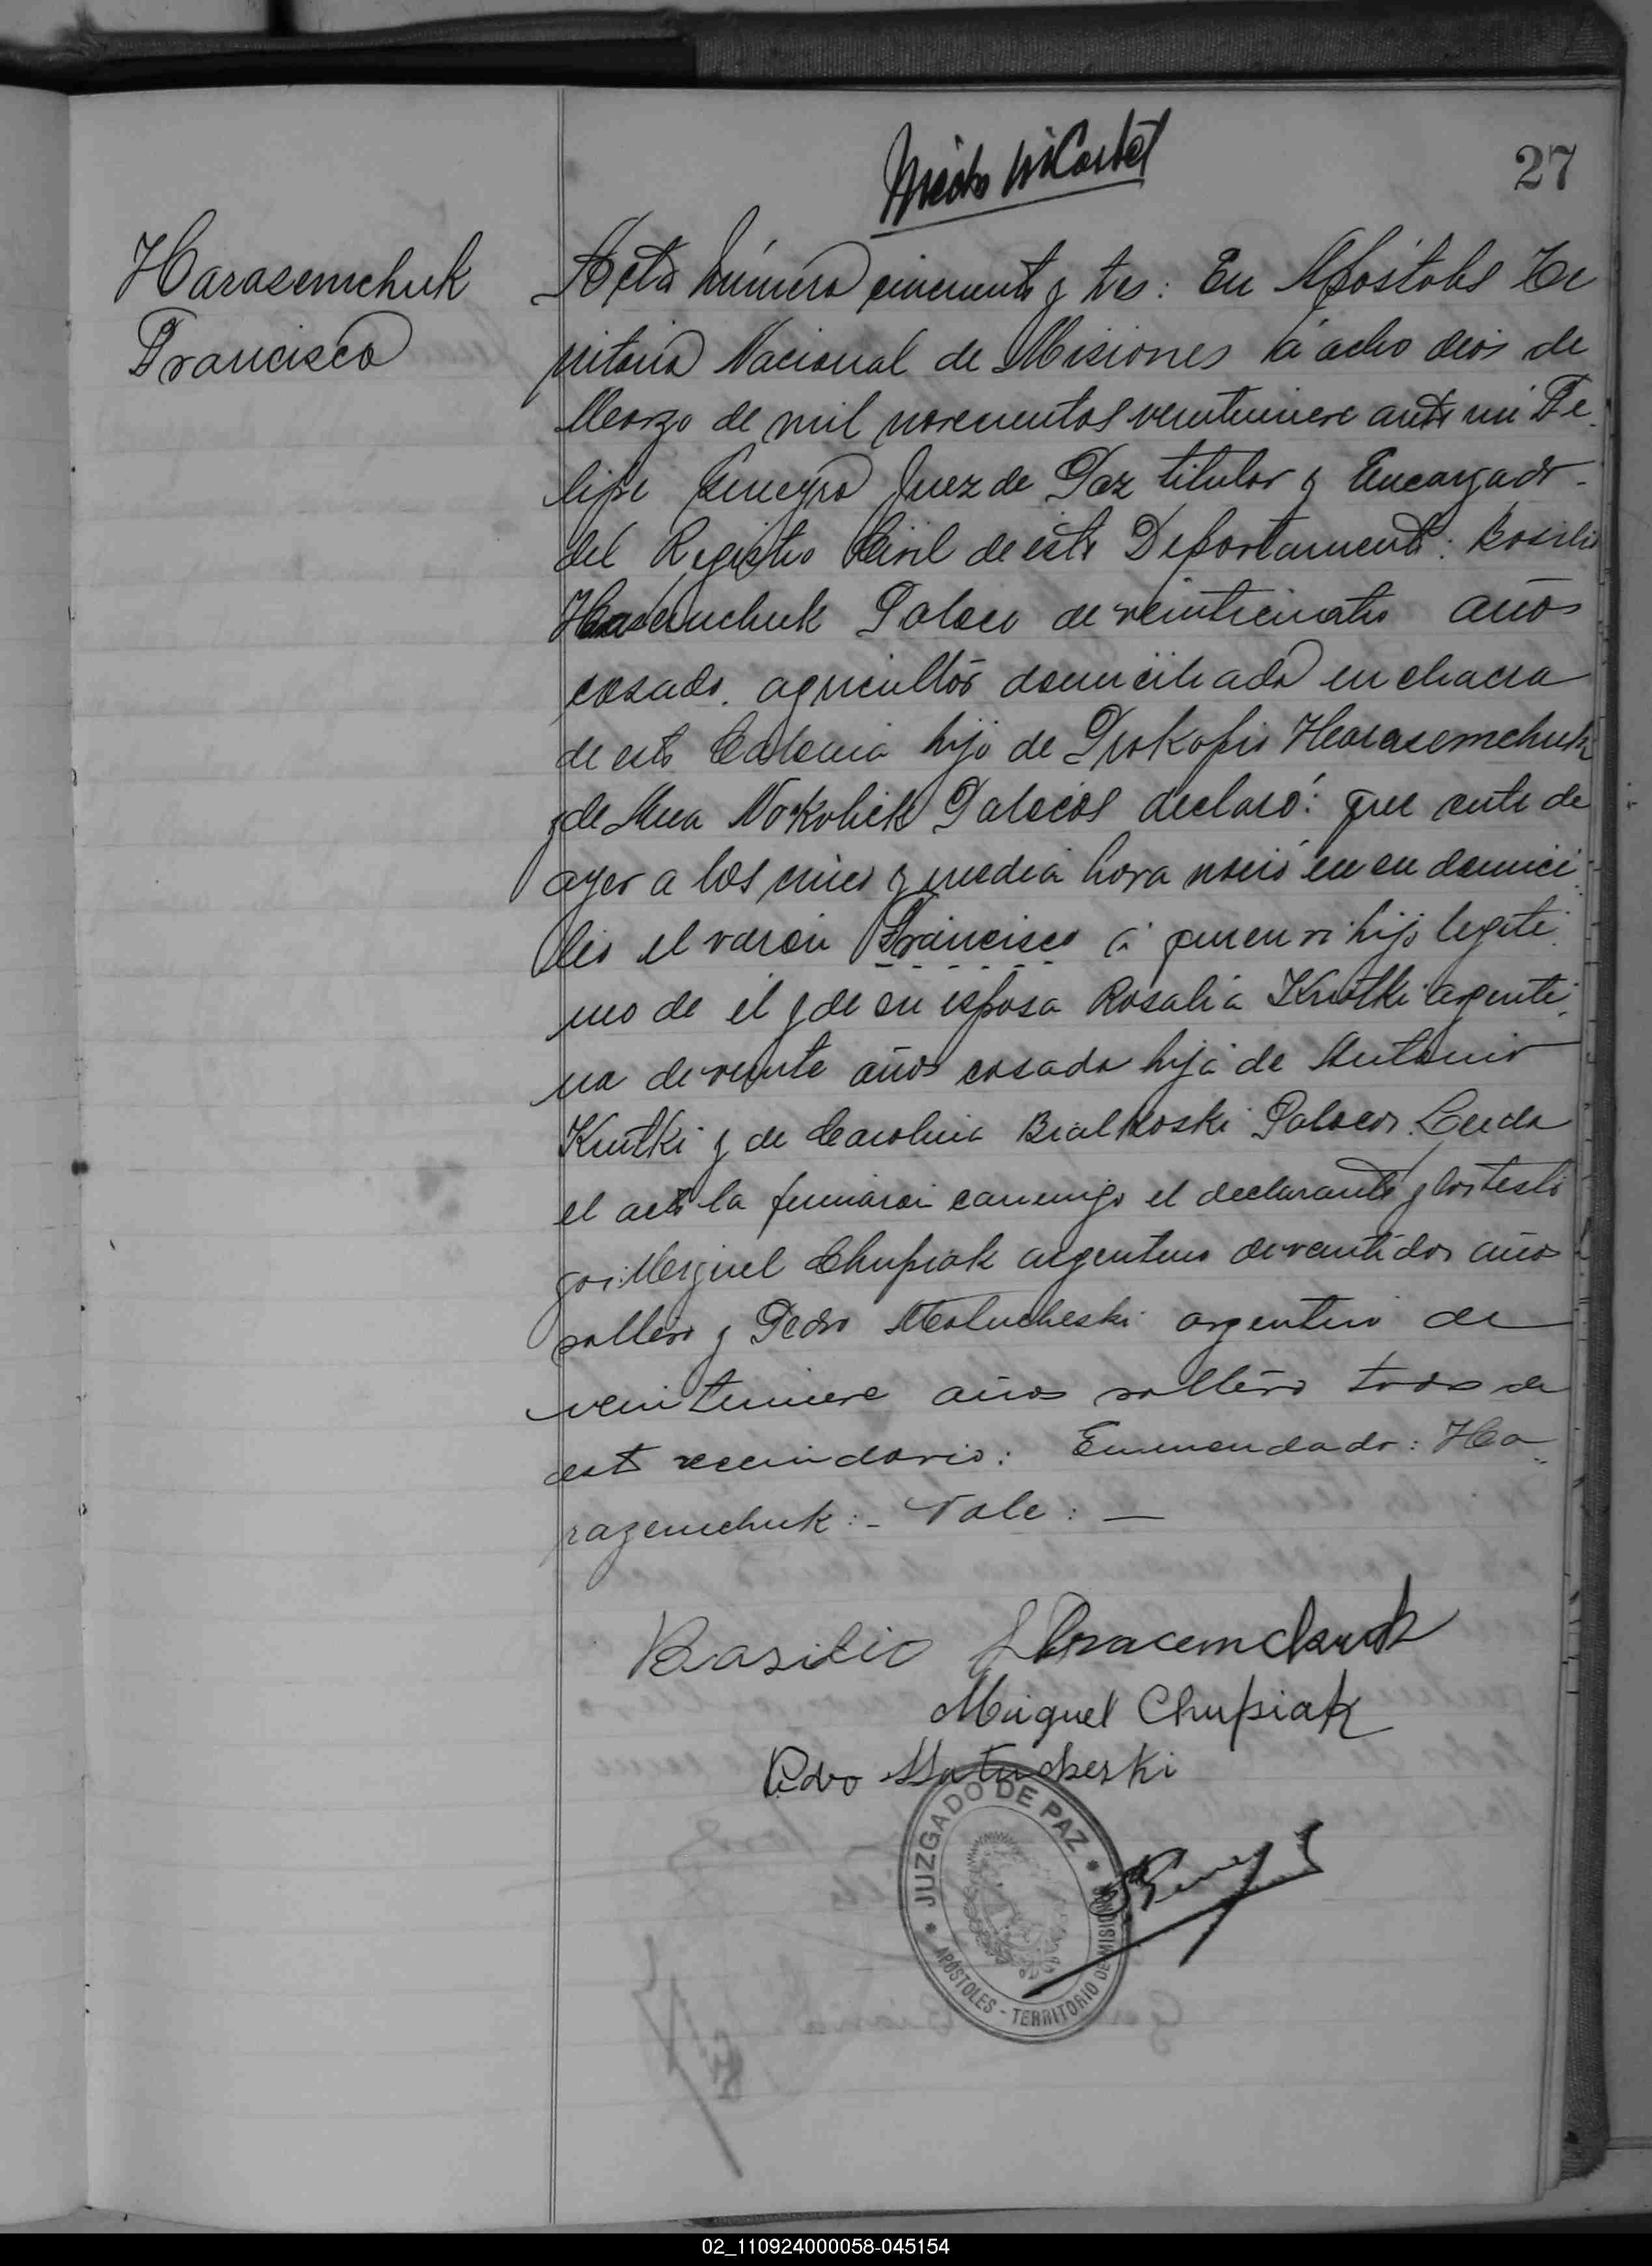 27
Harasemchuk
Francisco
Acta número cincuenta y tres: En Apóstoles Te
rritorio Nacional de Misiones a ocho dias de
Marzo de mil novecientos veintinueve ante mi Fe
lipe Juez de Paz titular y Encargado
del Registro Civil de este Departamento: Basilio
Harasemchuk Polaco de veinticuatro años
casado. agricultor domiciliado en chacra
de esta Colonia hijo de Prokofio Harasemchuk
y de Ana Polacos declaró: que ante de
ayer a las cinco y media hora nació en su domici
lio el varón Francisco a quien vi hijo legiti
mo de el y de su esposa Rosalia Knutki argenti
na de veinte años casada hija de Antonio
Knutki y de Carolina Bialkoski Polacos. Leida
el acta la firmaron conmigo el declarante y los testi
gos: Miguel Chupiak argentino de veintidos años
soltero y Pedro Matucheski argentino de
veintinueve años soltero todos de
este vecindario: Enmendado: Ha
razemchuk:- Vale: —
Basilio Haracemchuk
Miguel Chupiak
Pedro Matucheski
JUZGADO DE PAZ
APÓSTOLES - TERRITORIO DE MISIONES
02_110924000058-045154